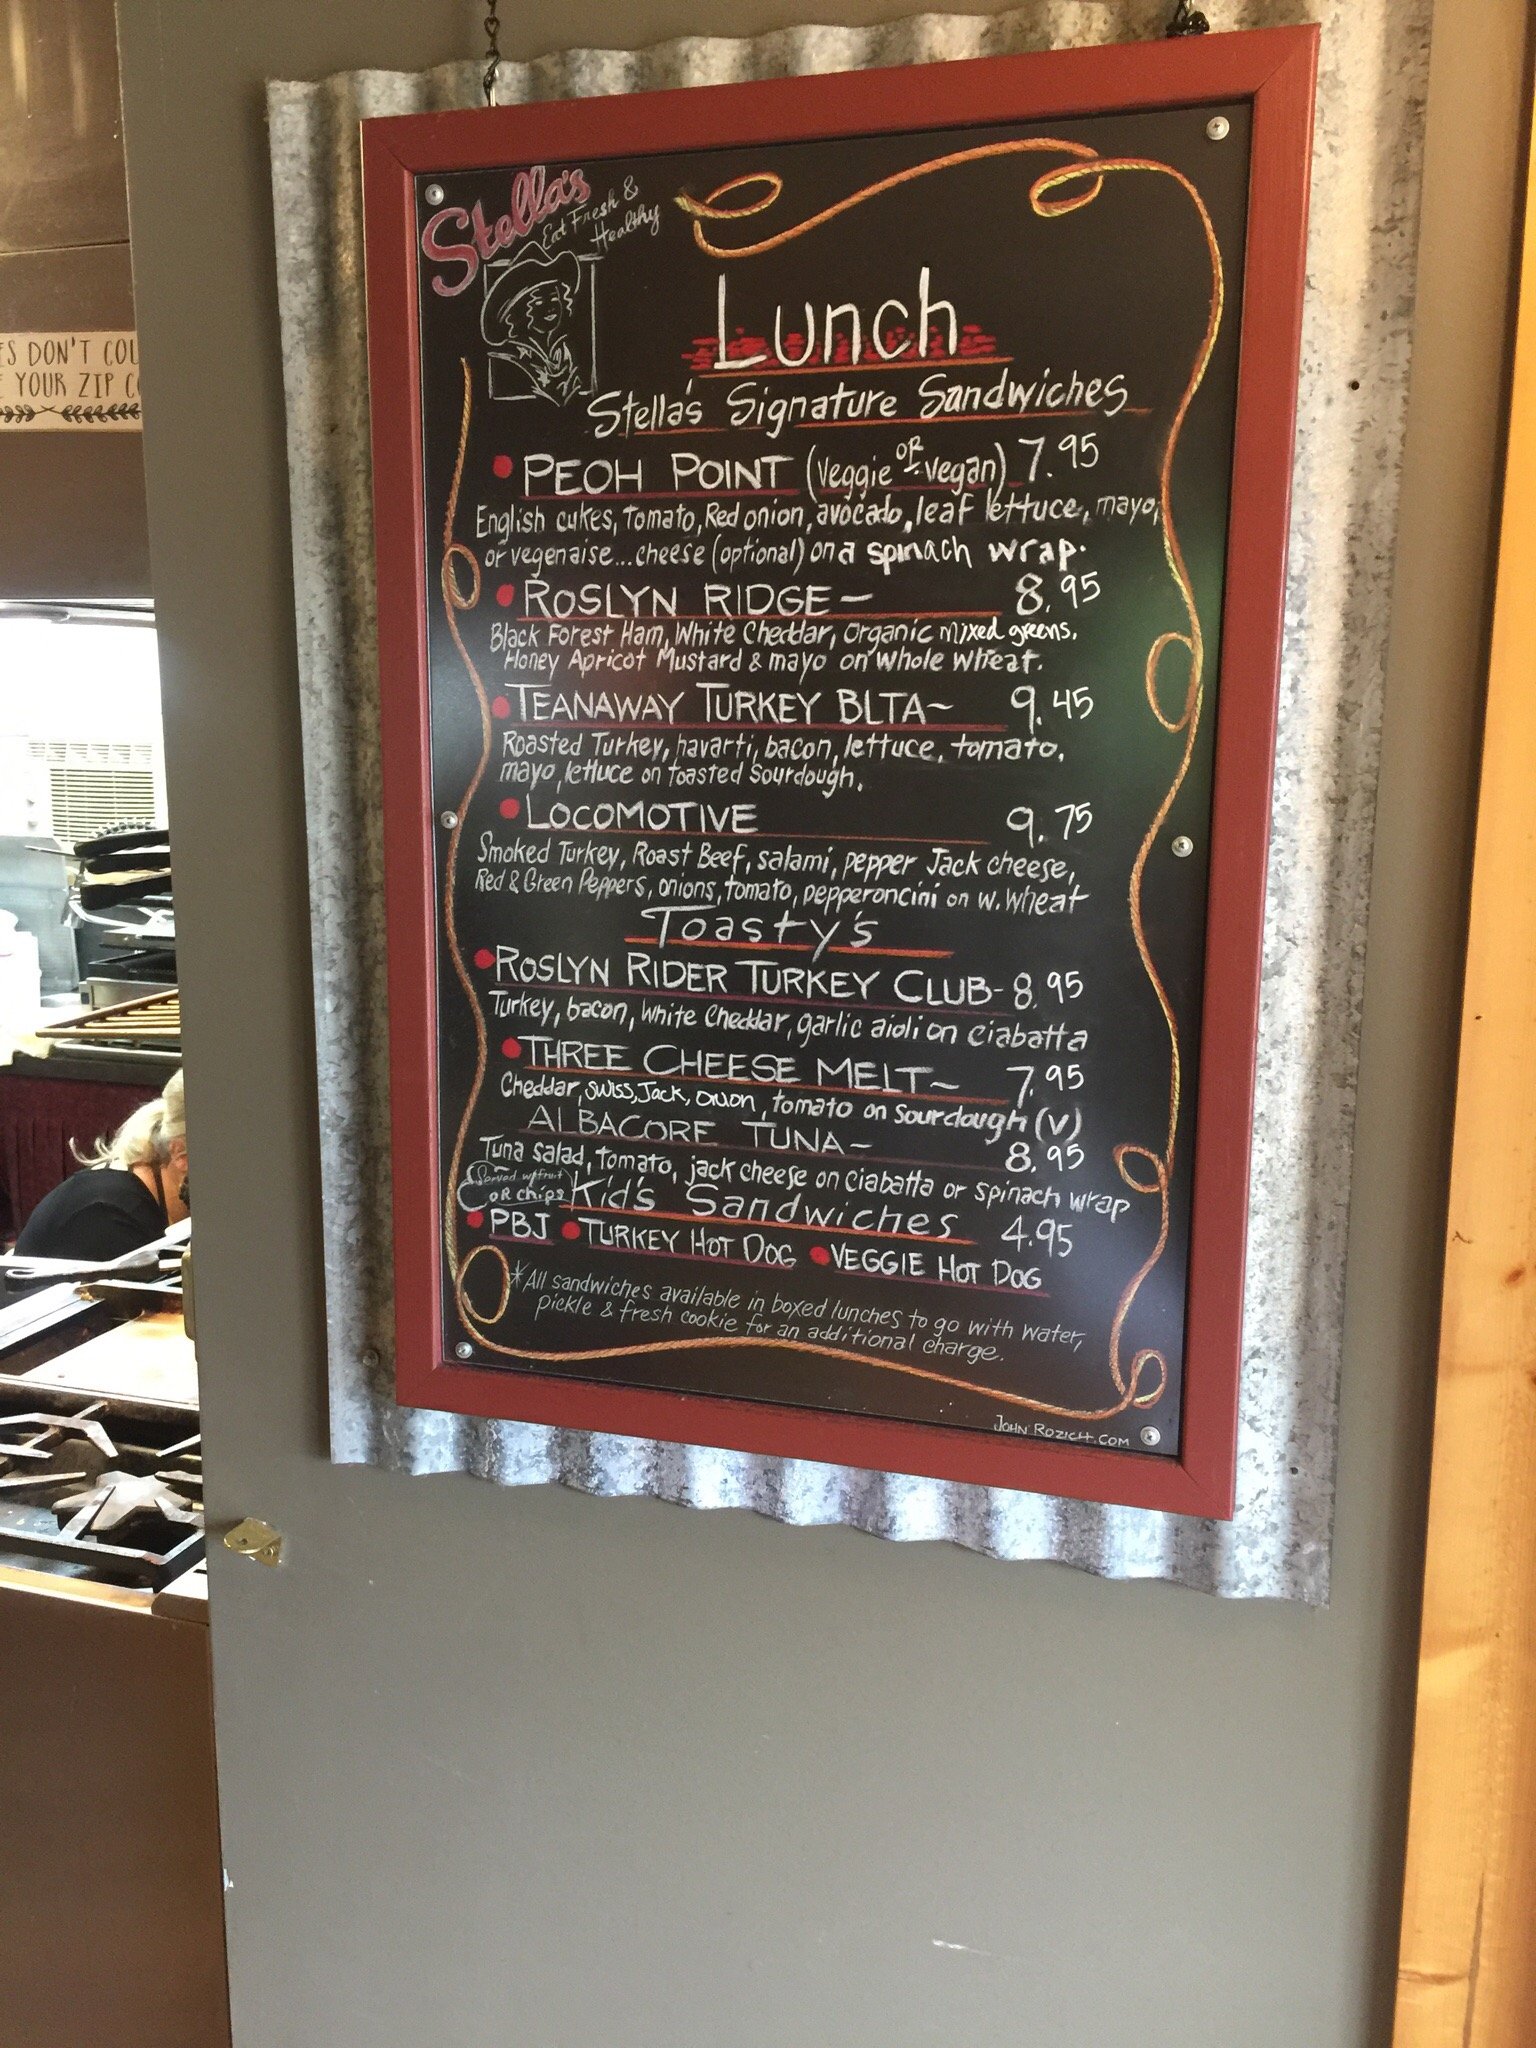 Stella's
Eat Fresh &
Healthy
Lunch
Stella's Signature Sandwiches
PEOH POINT (veggie OR vegan) 7.95
English cukes, Tomato, Red onion, avocado, leaf lettuce, mayo,
or vegenaise... cheese (optional) on a spinach wrap.
ROSLYN RIDGE~ 8.95
Black Forest Ham, White Cheddar, organic mixed greens.
Honey Apricot Mustard & mayo on whole wheat.
TEANAWAY TURKEY BLTA~ 9.45
Roasted Turkey, havarti, bacon, lettuce, tomato,
mayo, lettuce on toasted sourdough.
LOCOMOTIVE 9.75
Smoked Turkey, Roast Beef, salami, pepper Jack cheese,
Red & Green Peppers, onions, tomato, pepperoncini on w. wheat
Toasty's
ROSLYN RIDER TURKEY CLUB- 8.95
Turkey, bacon, White Cheddar, garlic aioli on ciabatta
THREE CHEESE MELT~ 7.95
Cheddar, swiss, Jack, onion, tomato on sourdough (v)
ALBACORE TUNA~ 8.95
Tuna salad, tomato, jack cheese on ciabatta or spinach wrap
Served w/fruit
OR chips
Kid's Sandwiches 4.95
PBJ TURKEY HOT DOG VEGGIE HOT DOG
*All sandwiches available in boxed lunches to go with water,
pickle & fresh cookie for an additional charge.
JOHN ROZICH.COM
DON'T
YOUR ZIP